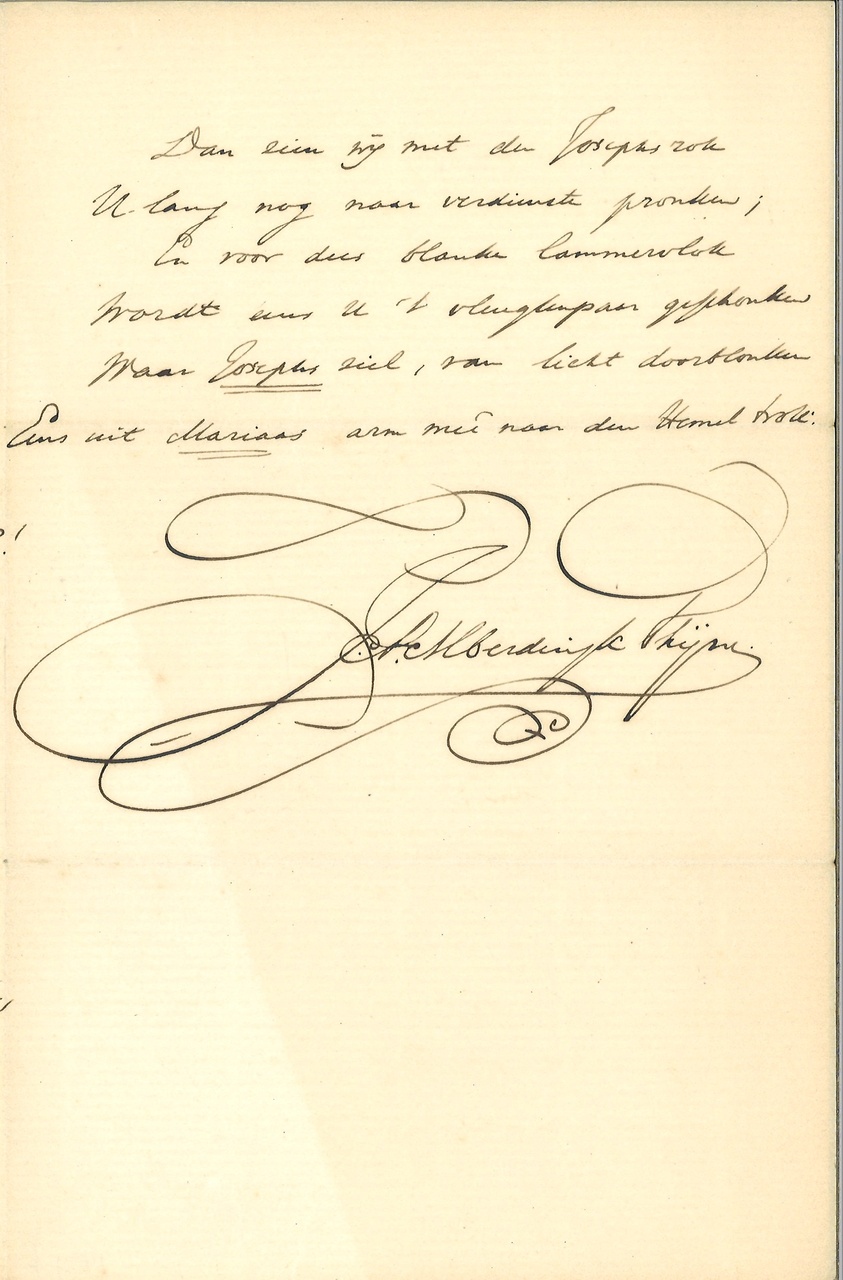 Dan zien wij met den Josephsrok
U lang nog naar verdienste pronken;
En voor dees blanke lammervlok
Wordt eens U 't vleuglenpaar geschonken
Waar Josephs ziel, van licht doorblonken
Eens uit Mariaas arm meê naar den Hemel trok.
J.A. Alberdingk Thijm.